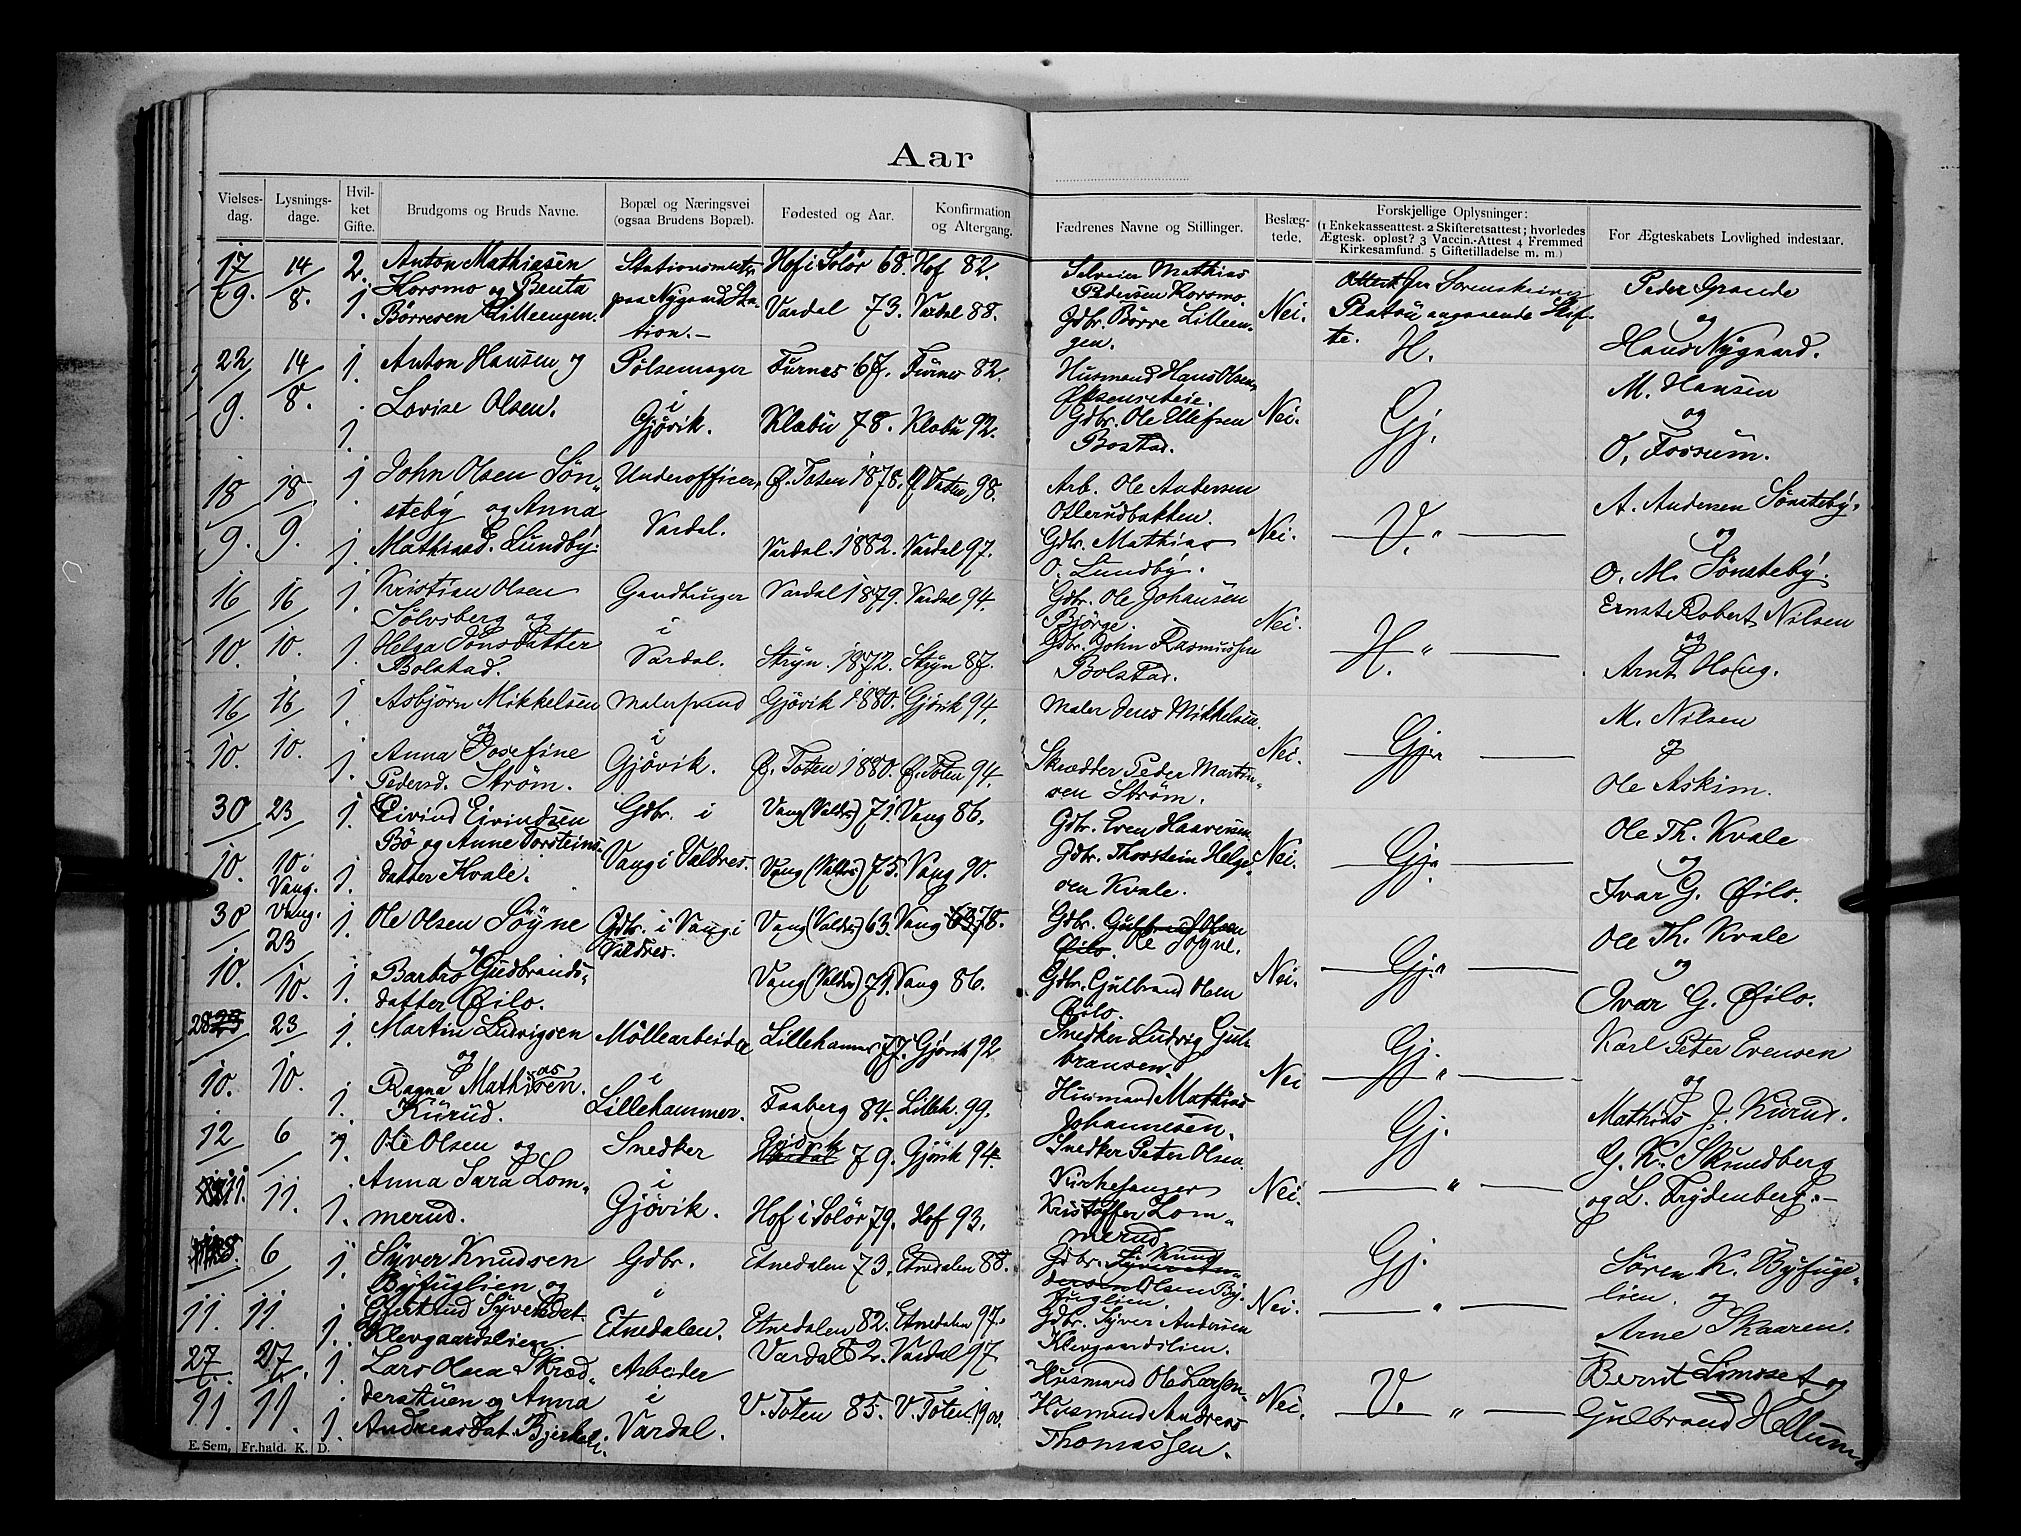 Aar
Vielses-dag.
Lysnings-dage.
Hvil-ket Gifte.
Brudgoms og Bruds Navne.
Bopæl og Næringsvei (ogsaa Brudens Bopæl).
Fødested og Aar.
Konfirmation og Altergang.
Fædrenes Navne og Stillinger.
Beslæg-tede.
Forskjellige Oplysninger: (1 Enkekasseattest. 2 Skifteretsattest; hvorledes Ægtesk. opløst? 3 Vaccin.-Attest 4 Fremmed Kirkesamfund. 5 Giftetilladelse m. m.)
For Ægteskabets Lovlighed indestaar.
17/9. 14/8. 2. 1.
Anton Mathiasen
Korsmo og Benta
Børresen Lilleengen.
Stationsmester
paa Nygaard Sta-
tion.-
Hof i Solør 68. Hof 82.
Vardal 73. Vardal 88.
Selveier Mathias
Pedersen Korsmo.
Gdbr. Børre Lilleen-
gen.
Nei.
Attest fra Sorenskriver
Platou angaaende Skif-
te. H.
Peder Grande
og
Hans Nygaard.
22/9. 14/8. 1. 1.
Anton Hansen og
Lovise Olsen.
Pølsemager
i
Gjøvik.
Furnes 67. Furnes 82.
Klæbu 78. Klæbu 92.
Husmand Hans Olsen
Gdbr. Ole Ellefsen
Bostad.
Nei.
Gj.
M. Hansen
og
O. Fossum.
18/9. 18/9. 1. 1.
John Olsen Søn-
steby og Anna
Mathiasd. Lundby.
Underofficer,
Vardal.
Ø. Toten 1878. Ø. Toten 98.
Vardal. 1882. Vardal 97.
Arb. Ole Andersen
Otlerudbakken.
Gdbr. Mathias
O. Lundby.
Nei.
V. "
A. Andersen Sønsteby.
og
O. M. Sønsteby.
16/10. 16/10. 1. 1.
Kristian Olsen
Sølvsberg og
Helga Jonsdatter
Bolstad.
Gaardbruger
i
Vardal.
Vardal 1879. Vardal 94.
Stryn. 1872. Stryn 87.
Gdbr. Ole Johansen
Bjørge.
Gdbr. John Rasmussen
Bolstad.
Nei.
H. "
Ernst Robert Nilsen
og
Arnt Haug.
16/10. 16/10. 1. 1.
Asbjørn Mikkelsen
og
Anna Josefine
Pedersd. Strøm.
Malersvend
i
Gjøvik.
Gjøvik 1880. Gjøvik 94.
Ø. Toten 1880. Ø. Toten 94.
Maler Jens Mikkelsen.
Skrædder Peder Martin-
sen Strøm.
Nei.
Gj. "
M. Nilsen
og
Ole Askim.
30/10. 23/10 i Vang. 1. 1.
Eivind Eivindsen
Bø og Anne Torsteins-
datter Kvale.
Gdbr. i
Vang i Valdres.
Vang (Valdrs) 71. Vang 86.
Vang (Valdrs) 75. Vang 90.
Gdbr. Even Haavensen
Gdbr. Thorstein Helge-
sen Kvale.
Nei.
Gj. "
Ole Th. Kvale
og
Ivar G. Øilo.
30/10. Vang. 23/10. 1. 1.
Ole Olsen Søyne
og
Barbro Gudbrands-
datter Øilo.
Gdbr. i Vang i
Valdres.
Vang (Valdrs) 63. Vang 78.
Vang (Valdrs) 71. Vang 86.
Gdbr. Gulbrand Olsen
Øilo. Ole Søyne.
Gdbr. Gulbrand Olsen
Øilo.
Nei.
Gj. "
Ole Th. Kvale
og
Ivar G. Øilo.
28 23/10. 23/10. 1. 1.
Martin Ludvigsen
og
Ragna Mathisen.
Kurud.
Møllearbeider
i
Lillehammer.
Lillehammer 77. Gjøvik 92.
Faaberg 84. Lilleh. 99.
Snedker Ludvig Gul-
bransen.
Husmand Mathias
Johannesen.
Nei
Gj. "
Karl Peter Evensen
og
Mathias J. Kurud.
12/11. 6/11. 1. 1.
Ole Olsen og
Anna Sara Lom-
merud.
Snedker
i
Gjøvik.
Gjøvik Vardal 79. Gjøvik 94.
Hof i Solør 79. Hof 93.
Snedker Peter Olsen.
Kirkesanger
Kristoffer Lom-
merud.
Nei.
Gj. "
G. K. Skundberg
og L. Frydenberg.-
8./11. 6/11. 1. 1.
Syver Knudsen
Byfuglien og
Gjertrud Syversdat.
Klevgaardslien.
Gdbr.
i
Etnedalen.
Etnedalen 73. Etnedalen 88.
Etnedalen 82. Etnedalen 97.
Gdbr. Knud
Olsen By-
fuglien.
Gdbr. Syver Andersen
Klevgaardslien.
Nei.
Gj. "
Søren K. Byfuge-
lien. og
Arne Skaaren.
27/11. 27/11. 1. 1.
Lars Olsen Skræd-
derstuen og Anna
Andreasdat. Bjerkeli.
Arbeider
i
Vardal.
Vardal 82. Vardal 97.
V. Toten 85. V. Toten 1900.
Husmand Ole Larsen.
Husmand Andreas
Thomassen.
Nei.
V. "
Bernt Limoset og
Gulbrand Hellum
E. Sem, Fr.hald. K. D.